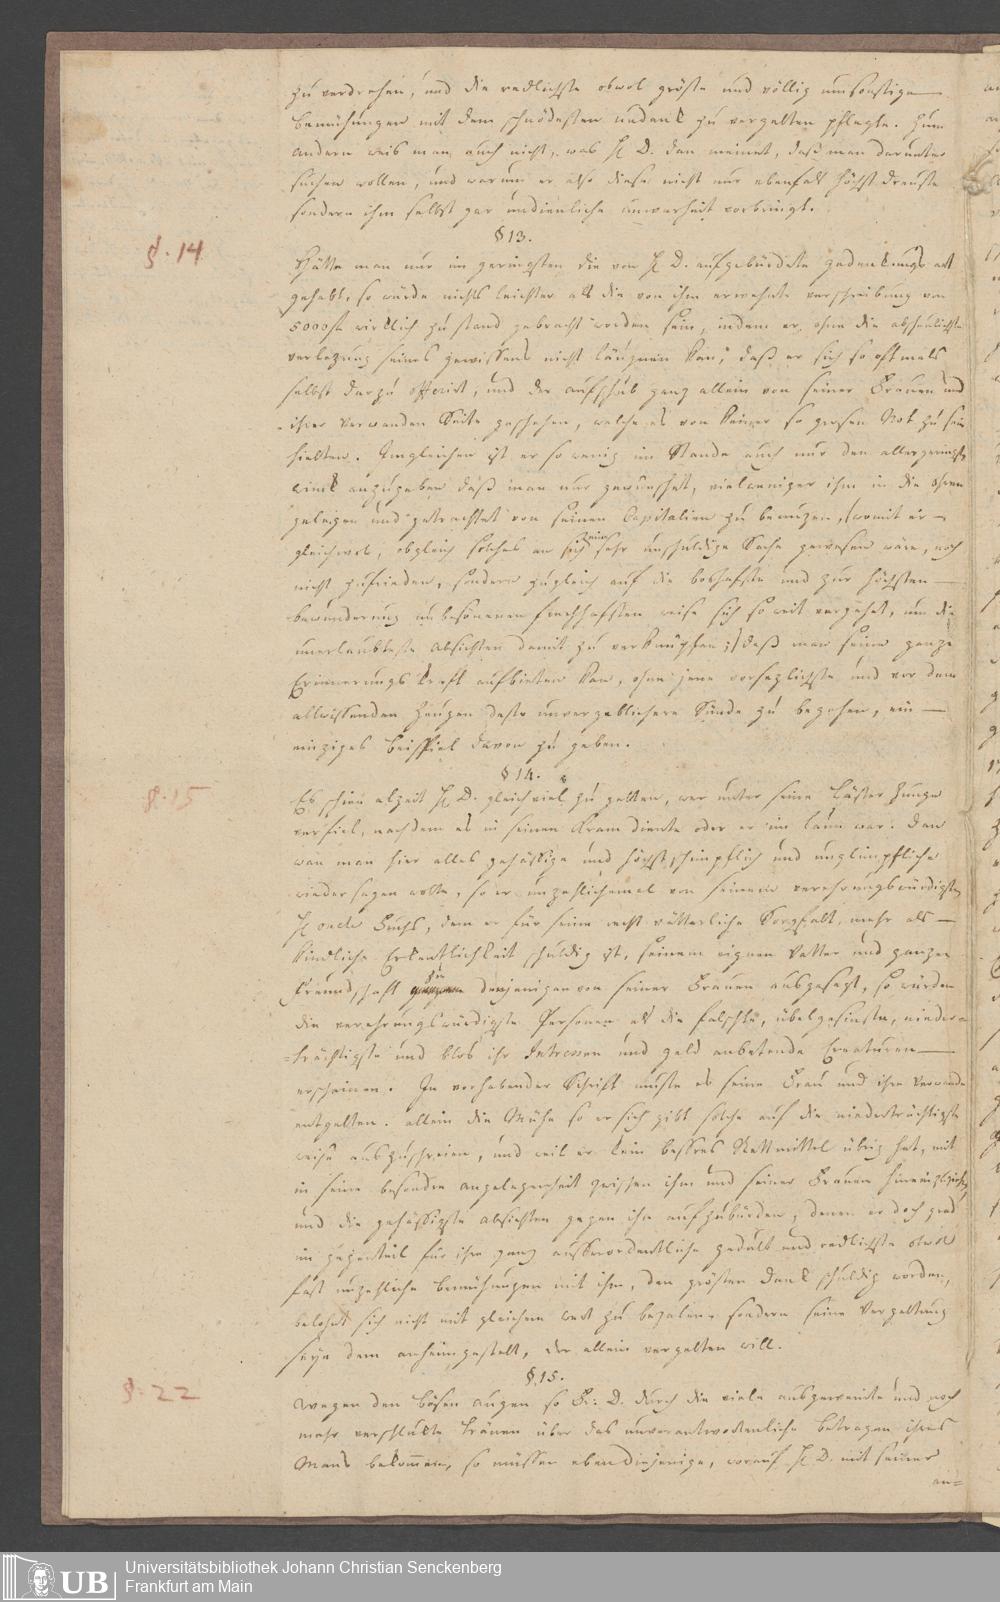 zu verdrehen, und die redlichste obwol gröste und völlig umsonstige
bemühungen mit dem schnödesten undank zu vergelten pflegte. Zum
andern weis man auch nicht, was H D. dan meinet, daß man darunter
suchen wollen, und warum er also diese nicht nur ebenfals höchst dreuste
sondern ihm selbst gar undienliche unwarheit vorbringt.
§ 13.
§. 14
Hätte man nur im geringsten die von H D. aufgebürdete gedenkungs art
gehabt, so würde nichts leichter als die von ihm erwehnte verschreibung von
5000 fl wirklich zu stand gebracht worden sein, indem er, ohne die abscheulichste
verlezung seines gewissens nicht läugnen kan, daß er sich so oftmals
selbst darzu offerirt, und der aufschub ganz allein von seiner Frauen und
ihrer verwanden Seite geschehen, welche es von keiner so grosen Not zu sein
hielten. Ingleichen ist er so wenig im Stande auch nur den allergeringsten
wink anzugeben daß man nur gewünschet, vielweniger ihm in die ohren
gelegen und getrachtet von seinen Capitalien zu benuzen, (womit er
gleichwol, obgleich solches an sich eine sehr unschuldige Sache gewesen wäre, noch
nicht zufrieden, sondern zugleich auf die boshafteste und zur höchsten
bewunderung unbesonnenen weise sich so weit vergehet, um die
unerlaubteste absichten damit zu verknüpfen;) daß man seine ganze
Erinnerungs Kraft aufbieten kan, ohne jene vorsezlichste und vor dem
allwissenden Zeugen desto unvergeblichere Sünde zu begehen, ein
einziges beispiel davon zu geben.
§ 14.
§. 15
Es schien alzeit H D. gleich viel zu gelten, wer unter seine Läster Zunge
verfiel, nachdem es in seinen Kram diente oder er im laun war. Den
wan man hier alles gehässige und höchst schimpflich und unglimpfliche
wieder sagen wolte, so er unzehlichemal von seinem verehrungswürdigsten
H oncle Fuchs, dem er für seine recht vätterliche Sorgfalt, mehr als
kindliche Erkentlichkeit schuldig ist, seinem eignen Vatter und ganzen
Freundschaft denjenigen von seiner Frauen ausgesagt, so würden
die verehrungswürdigste Personen als die falschste, übelgesinste, nieder-
=trächtigste und blos ihr Intressen und geld anbetende Creaturen
erscheinen. In vorhabender Schrift muste es seine Frau und ihre Verwande
entgelten. allein die Mühe so er sich gibt solche auf die niederträchtigste
weise auszuschreien, und weil er kein bessres Rettmittel übrig hat, mit
in seine besondre angelegenheit zwischen ihm und seiner Frauen hineinzuziehen,
und die gehässigste absichten gegen ihn aufzubürden, denen er doch grad
im gegenteil für ihre ganz ausserordentliche gedult und redlichste obwol
fast unzehliche bemühungen mit ihm, den grösten Dank schuldig worden,
belohnt sich nicht mit gleichem wert zu bezalen, sondern seine Vergeltung
seye dem anheimgestelt, der allein vergelten will.
§. 15.
§. 22
Wegen den bösen augen so Fr: D. durch die viele ausgeweinte und noch
mehr verschlukte tränen über das unverantwortliche betragen ihres
Mans bekommen, so müssen eben diejenige, worauf H D. mit seiner
an=
Universitätsbibliothek Johann Christian Senckenberg
Frankfurt am Main
UB